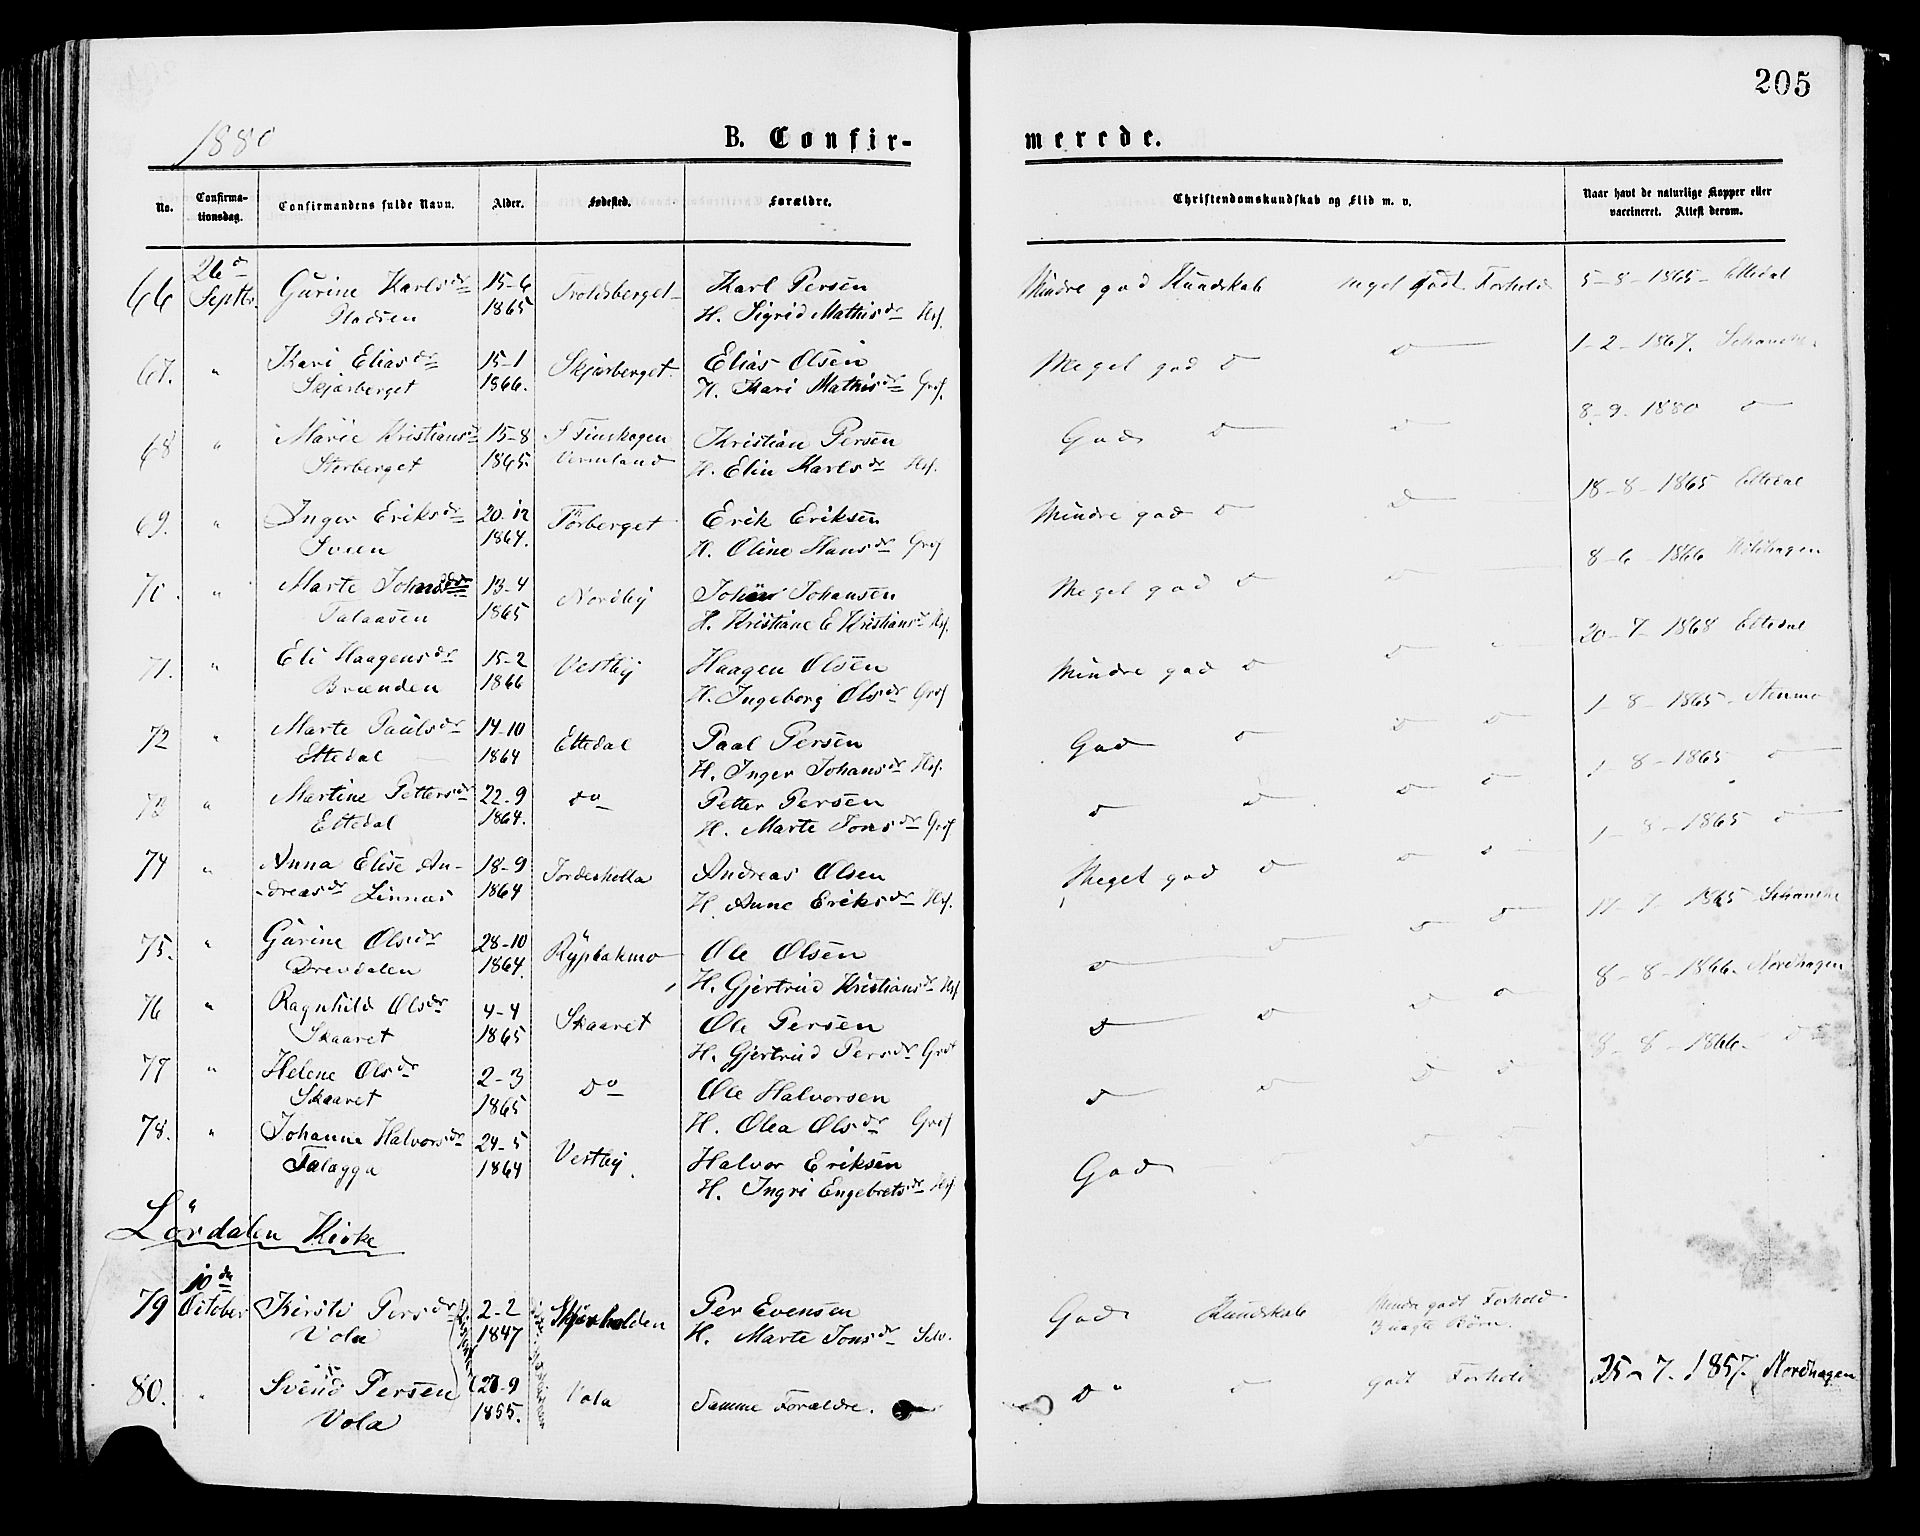 205
1880
B. Confirmerede.
No. Confirmationsdag. Confirmandens fulde Navn. Alder. Fødested. Forældre. Christendomskundskab og Flid m. v. Naar havt de naturlige Kopper eller vaccineret. Attest derom.
66 26d Septbr. Gurine Karlsdr 15-6 1865 Troldsberget Karl Persen
H. Sigrid Mathisdr Mindre god Kundskab meget godt Forhold 5-8-1865 Ettedal
67. " Kari Eliasdr Skjærberget 15-1 1866. Skjærberget Elias Olsen
H. Kari Mathisdr Meget god d d 1-2-1867.
68 " Marie Kristiansd 15-8 1865. Finskogen Vermland Kristian Persen
H. Elin Karlsdr God d d 8-9-1880 d
69. " Inger Eriksdr Sveen 20-12 1864. Törberget Erik Eriksen
H. Oline Hansdr Mindre god d d 18-8-1865 Ettedal
70. " Marte 13-4 1865 Nordby Johansen
H. Kristiane E Kristiansd Meget god d d 8-6-1866
71. " Eli Haagensdr Brænden 15-2 1866 Vestby Haagen Olsen
H. Ingeborg Olsdr Mindre god d d 20-7-1868 Ettedal
72 " Marte Paulsdr Ettedal 14-10 1864 Ettedal Paal Persen
H. Inger Johansdr God d d d 1-8-1865 Stenmo
73 " Martine Pettersdr Ettedal 22-9 1864. do Petter Persen
H. Marte Jonsdr d d d d 1-8-1865 d
74 " Anna Elise Andreasdr Linnæs 18-9 1864 Andreas Olsen
H. Anne Eriksdr Meget god d d d 1-8-1865 d
75. " Gurine Olsdr Drevdalen 28-10 1864. Ole Olsen
H. Gjertrud Kristiansd d d d d 1865
76 " Ragnhild Olsdr Skaaret 4-4 1865 Skaaret Ole Persen
H. Gjertrud Persdr d d d d 8-8-1866. Nordhagen
77 " Helene Olsdr Skaaret 2-3 1865 do Ole Halvorsen
H. Olea Olsdr d d d d 8-8-1866. d
78. " Johanne Halvorsdr 24-5 1864 Vestby Halvor Eriksen
H. Ingri Engebretsdr God d d
Lördalen Kirke
79 10de October Kirsti Persdr Vola 2-2 1847 Per Evensen
H. Marte Jonsdr God Kundskab Mindre godt Forhold
3 uægte Börn.
80. " Svend Persen Vola 9 1855. Vola Samme Forældre. do d godt Forhold 25-7. 1857. Nordhagen